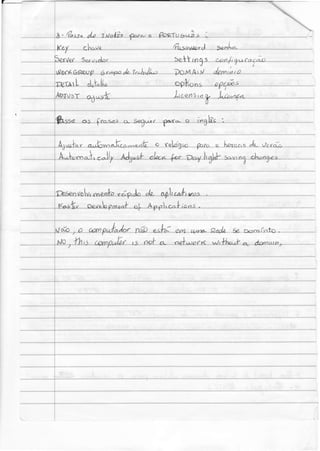 3- Passe do Inglês para o PORTUGUÊS :
Key chave Password Senha
Server Servidor Settings configuração
WORKGROUP Grupo de Trabalho DOMAIN domínio
DETAIL detalhe Options opções
ADJUST ajuste Licensing Licença
Passe as frases a seguir para o inglês :
Ajustar automaticamente o relógio para o horário de verão
Automatically Adjust clock for Day light saving changes
Desenvolvimento rápido de aplicativos .
Faster Development of Applications .
NÃO , o computador não está em uma Rede se Domínio .
NO , This computer is not a network without a domain,